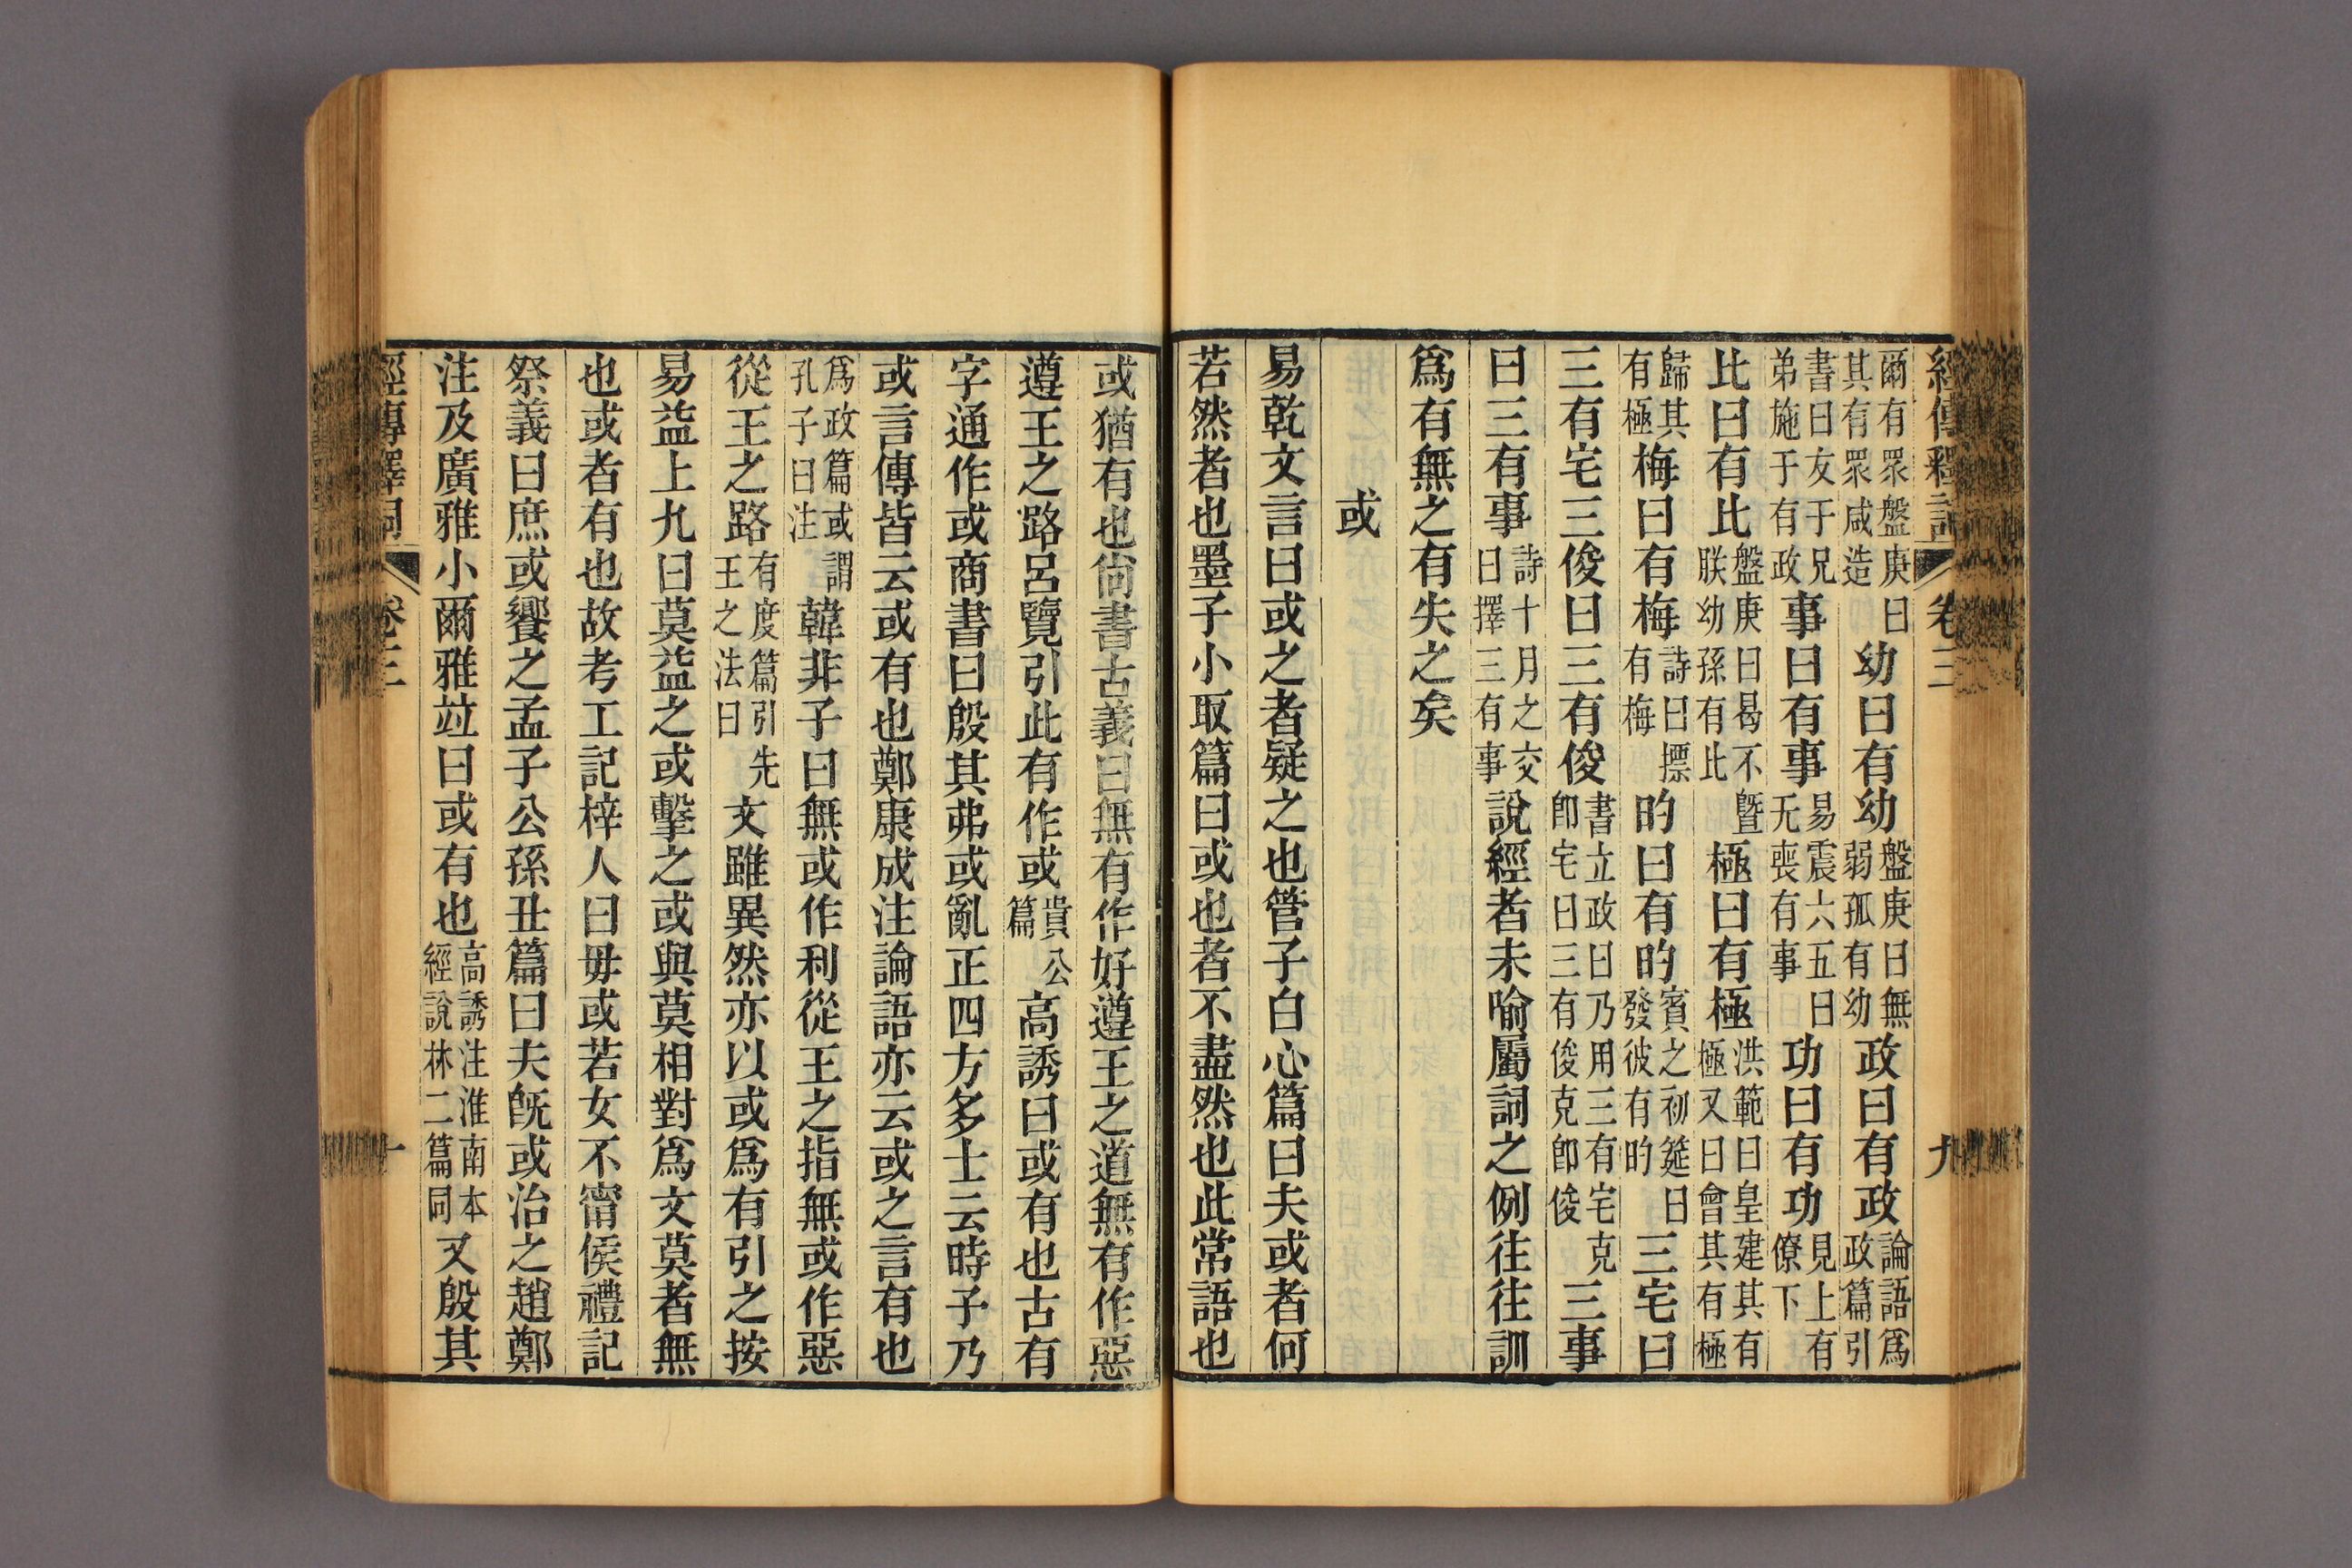 經傳釋詞 卷三 九
爾有眾盤庚曰其有眾咸造幼曰有幼盤庚曰無弱孤有幼政曰有政論語爲政篇引
書曰友于兄弟施于有政事曰有事易震六五曰无喪有事功曰有功見上有僚下
比曰有比盤庚曰曷不曁朕幼孫有比極曰有極洪範曰皇建其有極又曰會其有極
歸其有極梅曰有梅詩曰摽有梅旳曰有旳賓之初筵曰發彼有旳三宅曰
三有宅三俊曰三有俊書立政曰乃用三有宅克卽宅曰三有俊克卽俊三事
曰三有事詩十月之交曰擇三有事說經者未喻屬詞之例往往訓
爲有無之有失之矣
或
易乾文言曰或之者疑之也管子白心篇曰夫或者何
若然者也墨子小取篇曰或也者不盡然也此常語也
或猶有也尙書古義曰無有作好遵王之道無有作惡
遵王之路呂覽引此有作或貴公篇高誘曰或有也古有
字通作或商書曰殷其弗或亂正四方多士云時予乃
或言傳皆云或有也鄭康成注論語亦云或之言有也
爲政篇或謂孔子曰注韓非子曰無或作利從王之指無或作惡
從王之路有度篇引先王之法曰文雖異然亦以或爲有引之按
易益上九曰莫益之或擊之或與莫相對爲文莫者無
也或者有也故考工記梓人曰毋或若女不甯侯禮記
祭義曰庶或饗之孟子公孫丑篇曰夫旣或治之趙鄭
注及廣雅小爾雅竝曰或有也高誘注淮南本經說林二篇同又殷其
經傳釋詞 卷三 十